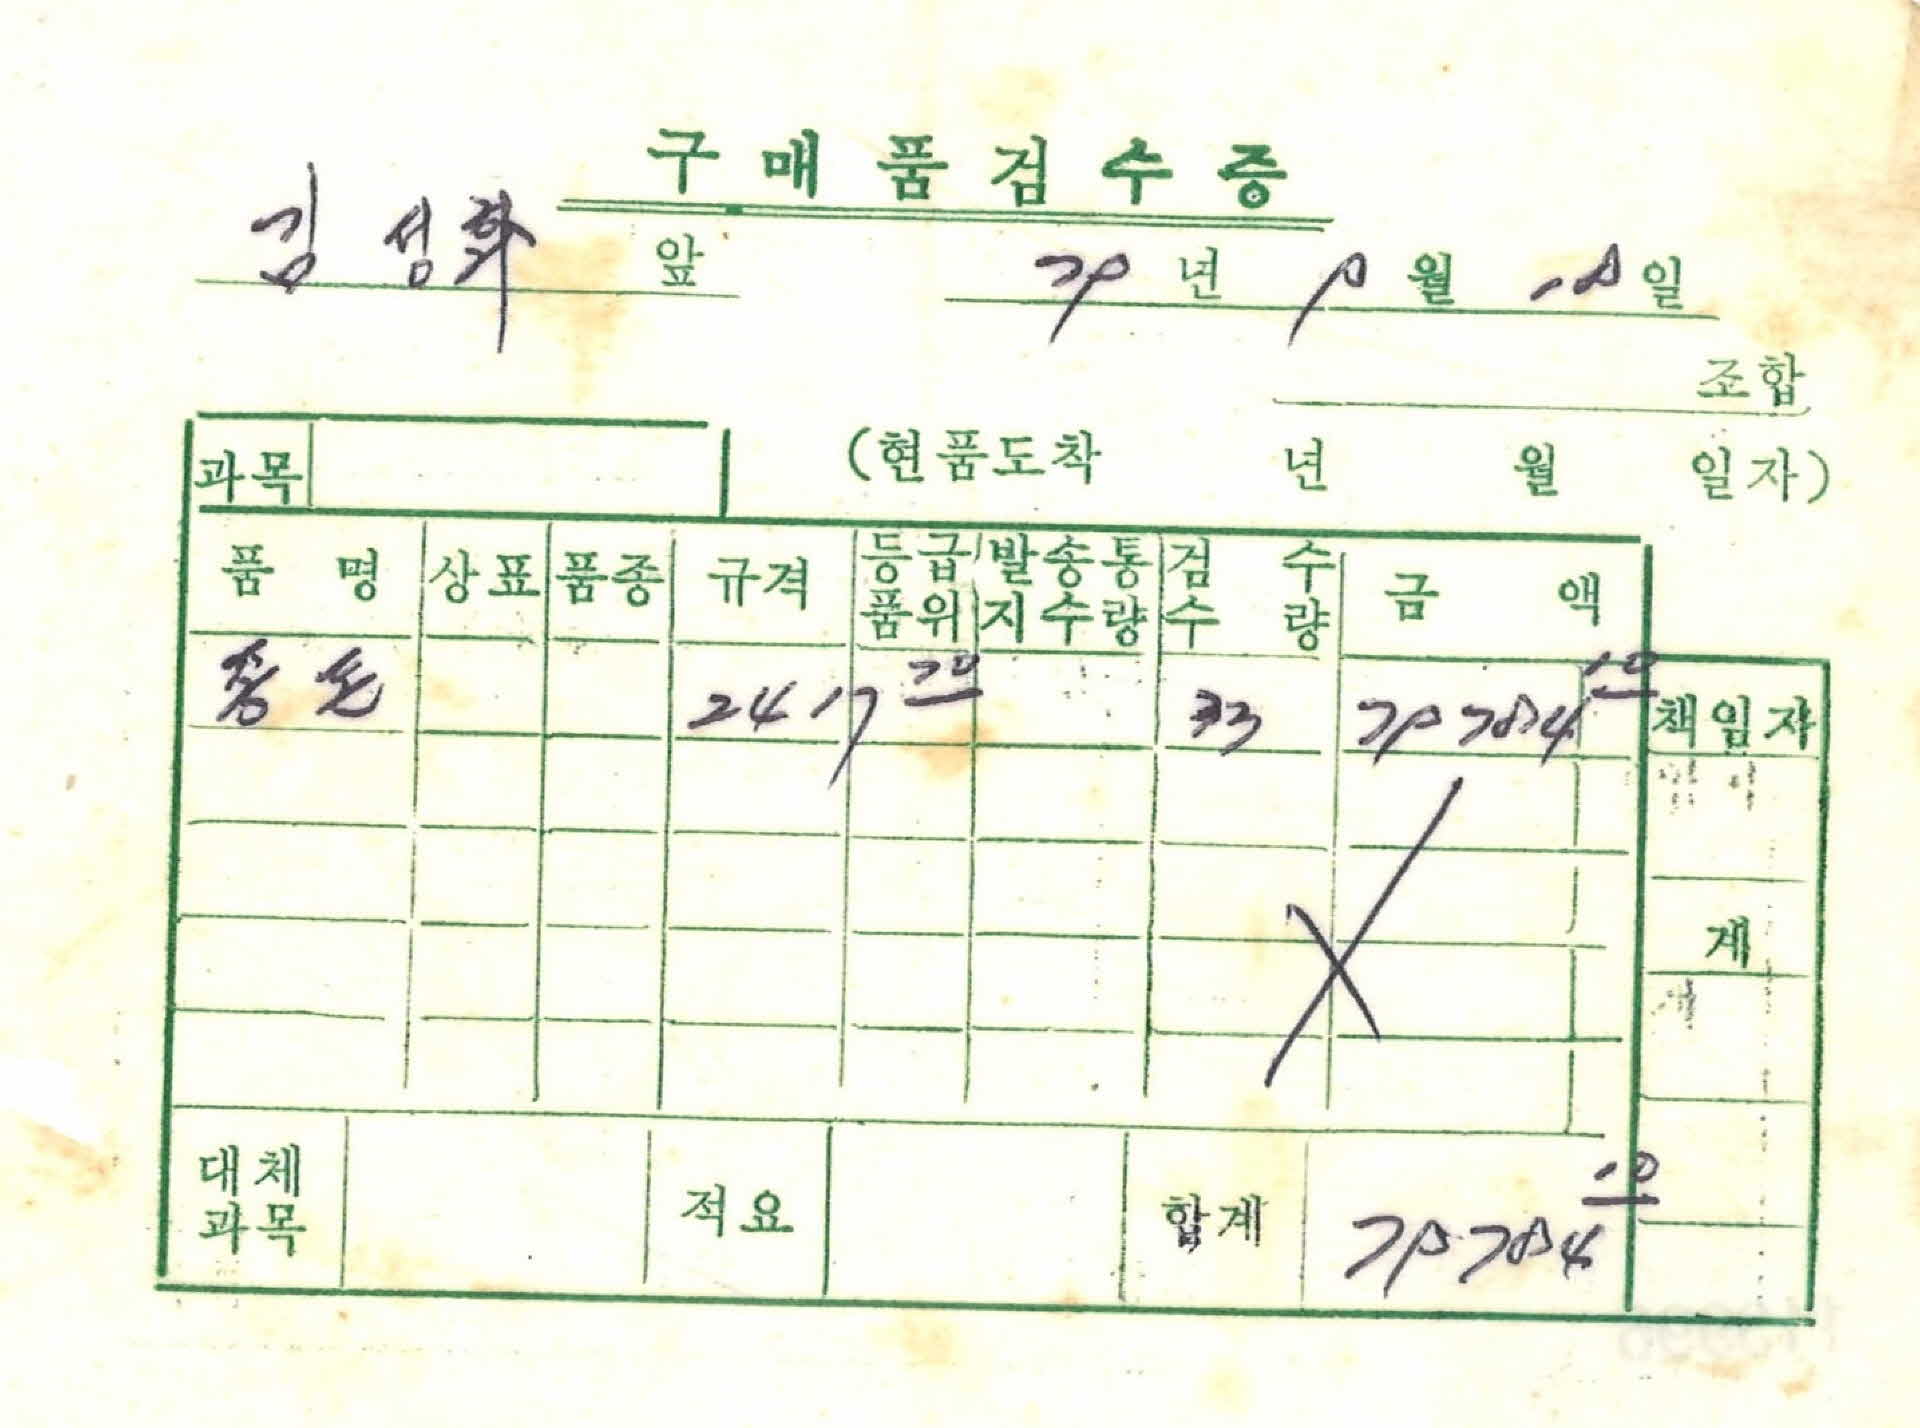 구매품검수증
김 앞
79년 9월 18일
조합
과목
(현품도착 년 월 일자)
품명 상표 품종 규격 등급품위 발송통지수량 검수수량 금액
2417 70 33 79784 10
책임자
계
대체과목 적요 합계 79784 10